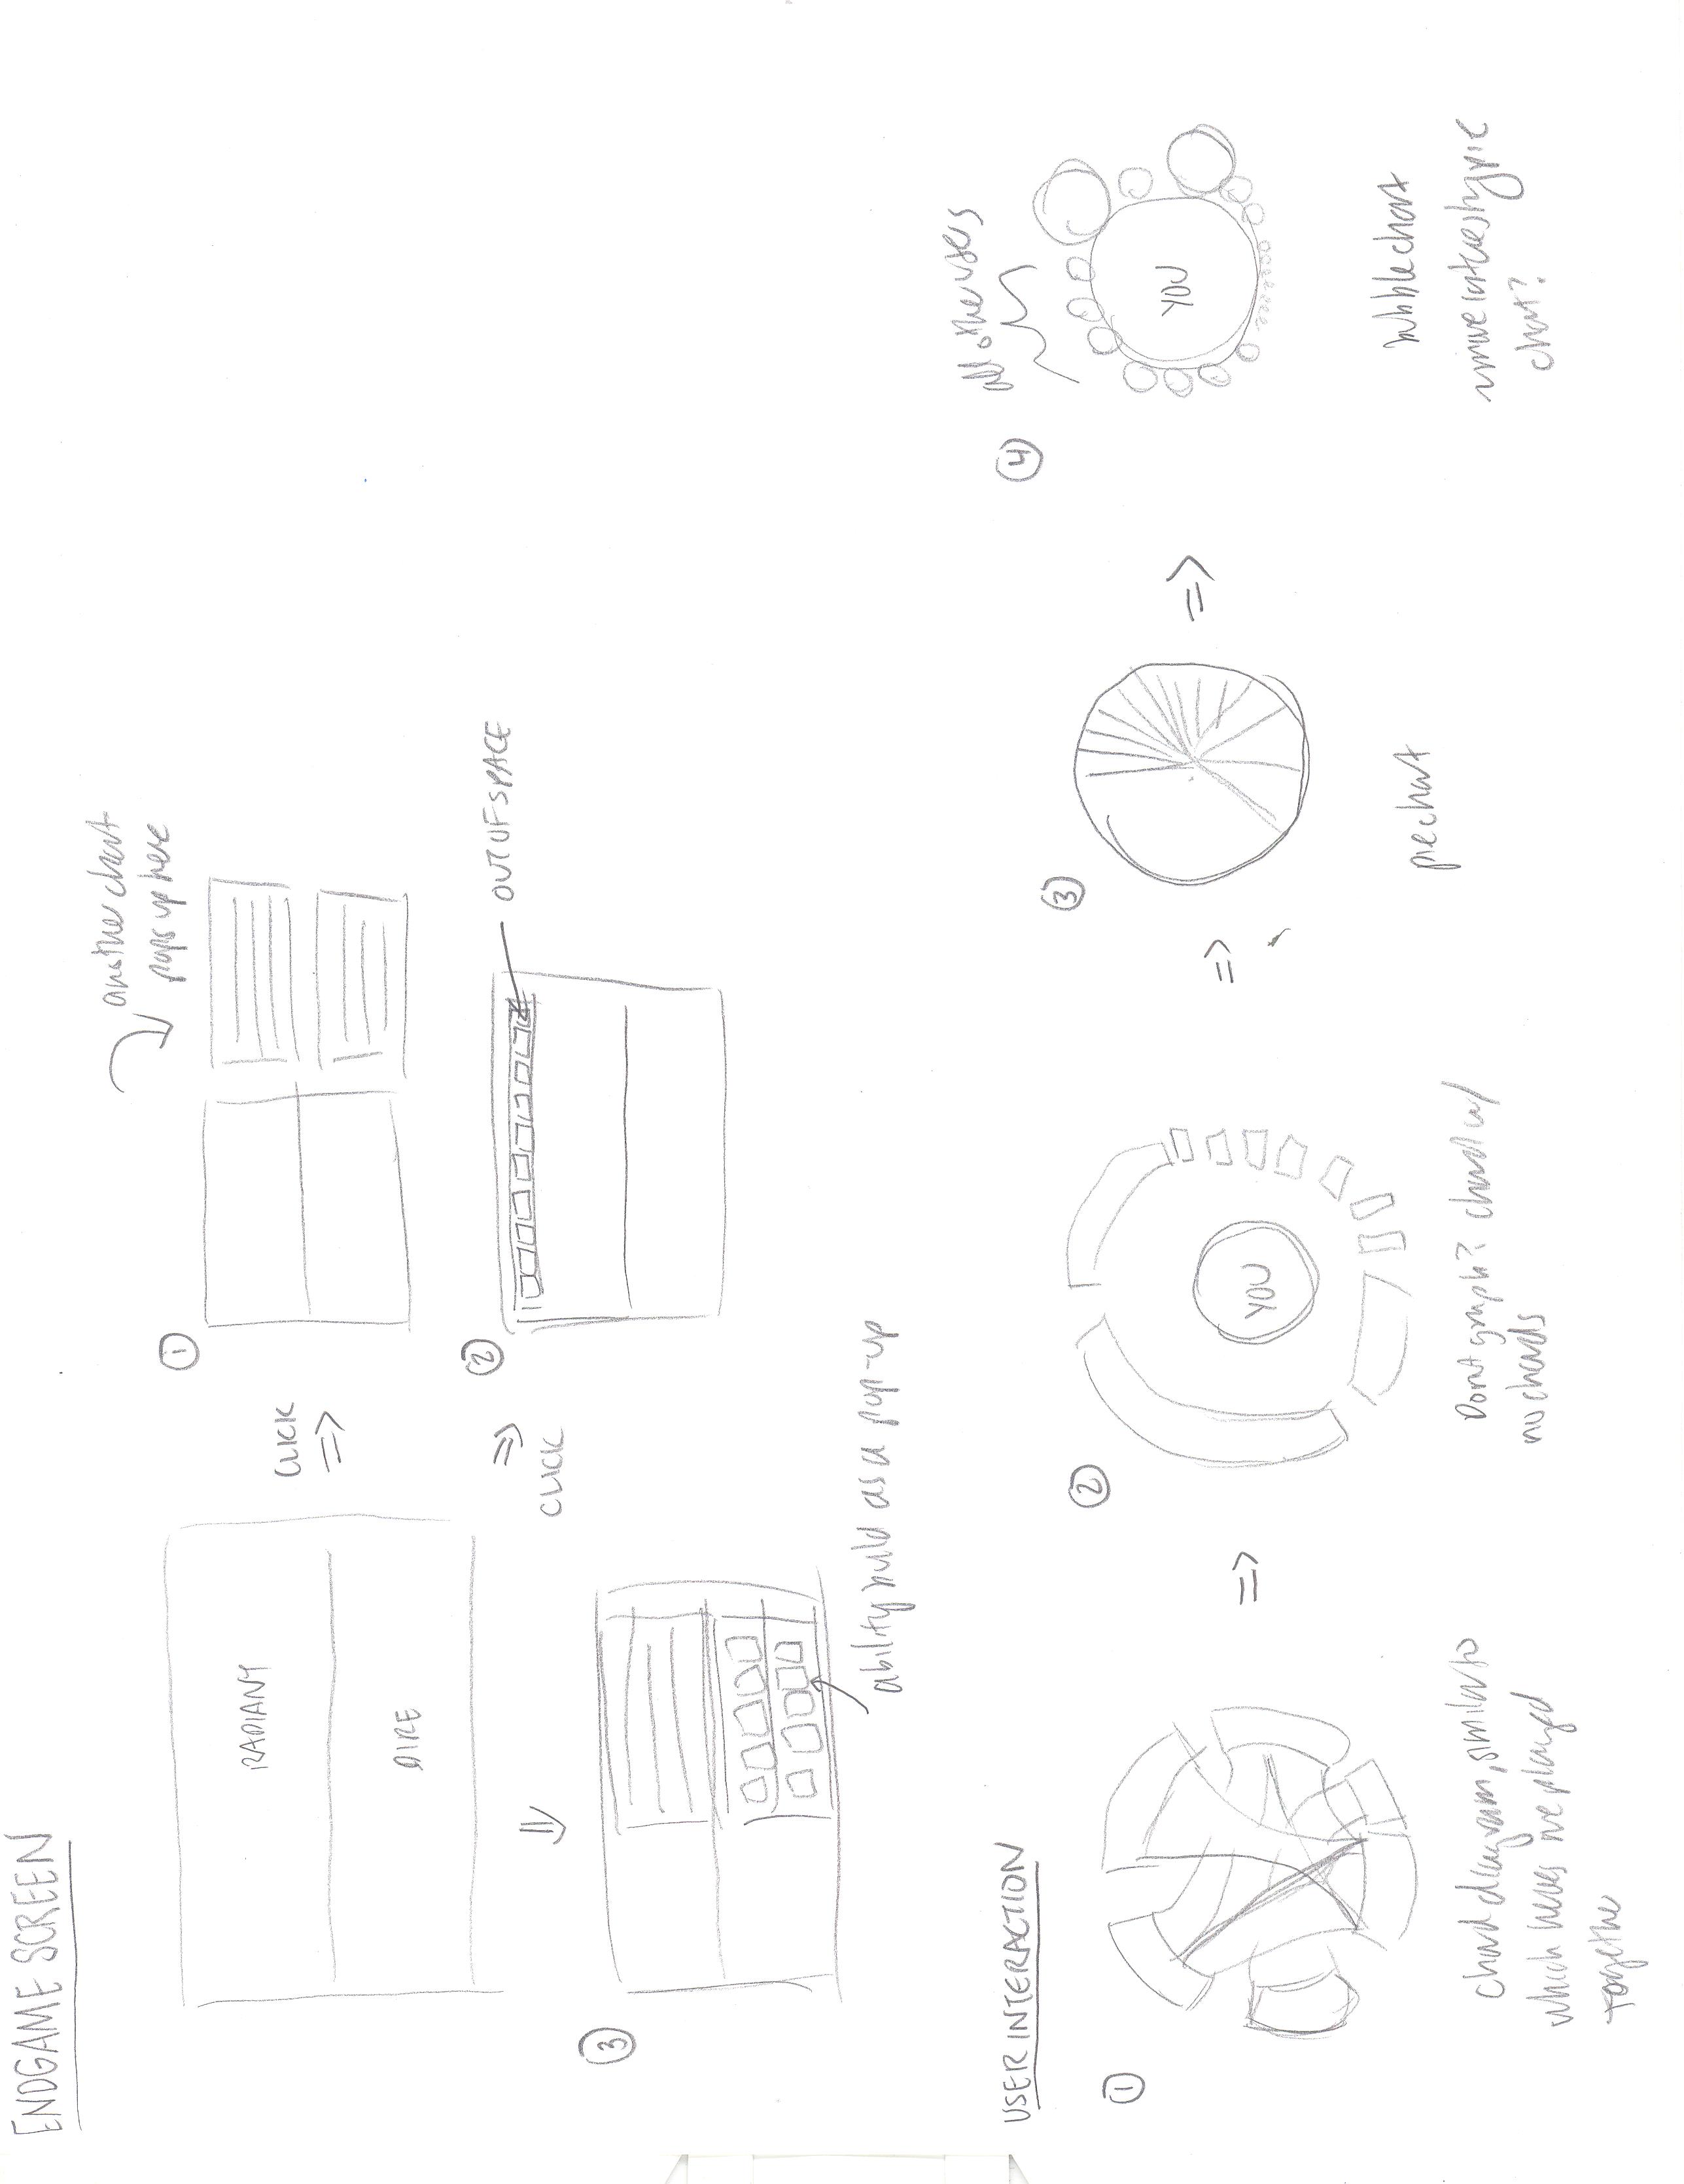 ENDGAME SCREEN
RADIANT
DIRE
CLICK
⇒
①
another chart
pops up here
⇒
CLICK
②
OUT OF SPACE
⇒
③
ability build as a pop-up
USER INTERACTION
①
chord diagram, similar to
which heroes were played
together
⇒
②
YOU
Donut graph? chord w/
no chords
⇒
③
piechart
⇒
④
all other users
YOU
bubble chart
chart?